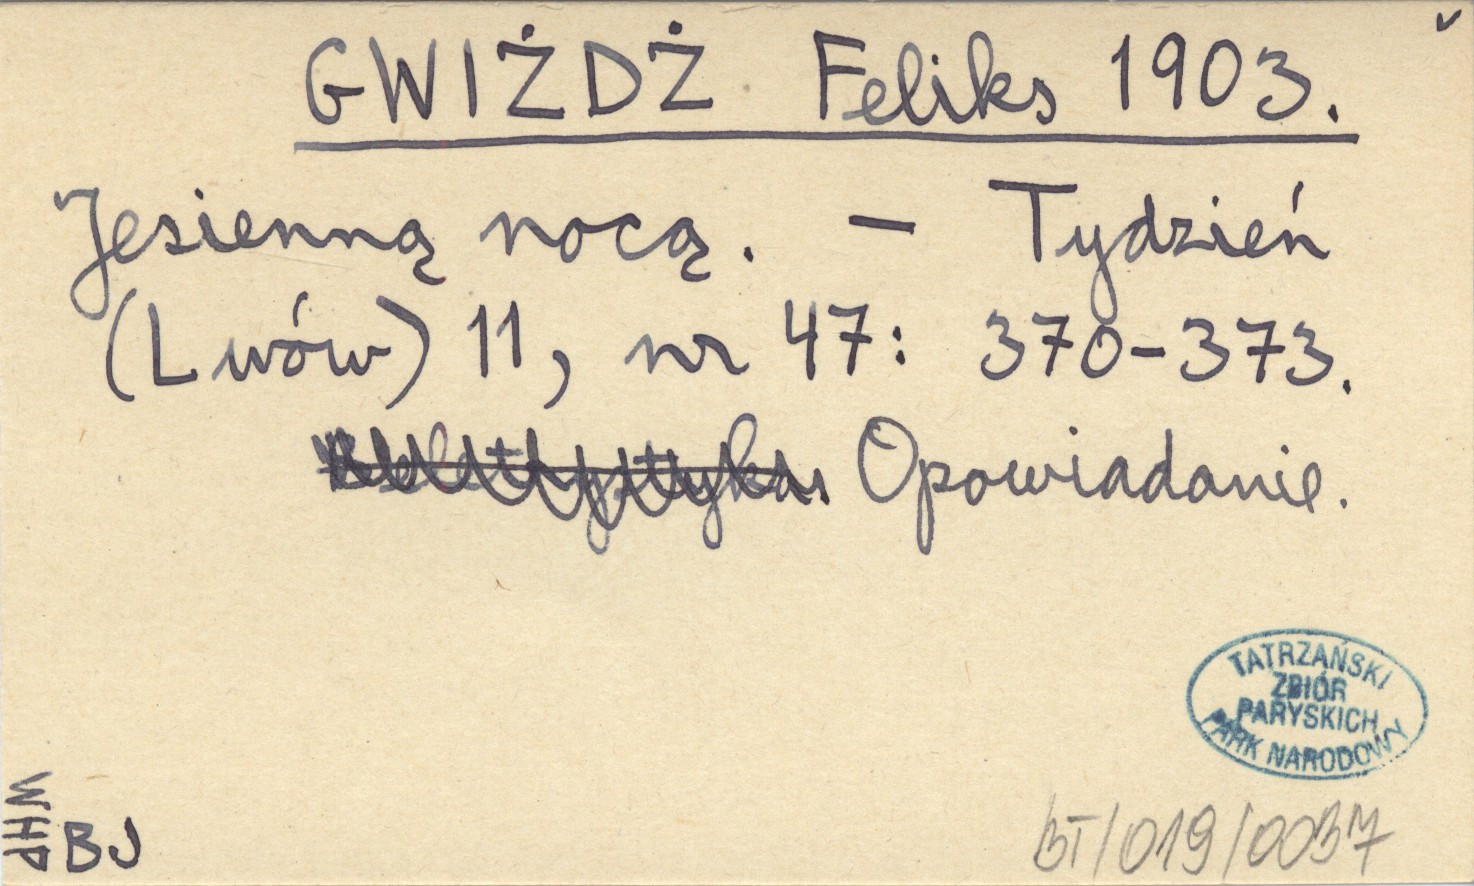 GWIŻDŻ Feliks 1903.
Jesienną nocą. – Tydzień
(Lwów) 11, nr 47: 370-373.
Opowiadanie.
TATRZAŃSKI
ZBIÓR
PARYSKICH
PARK NARODOWY
WHP
BJ
BT/019/0037